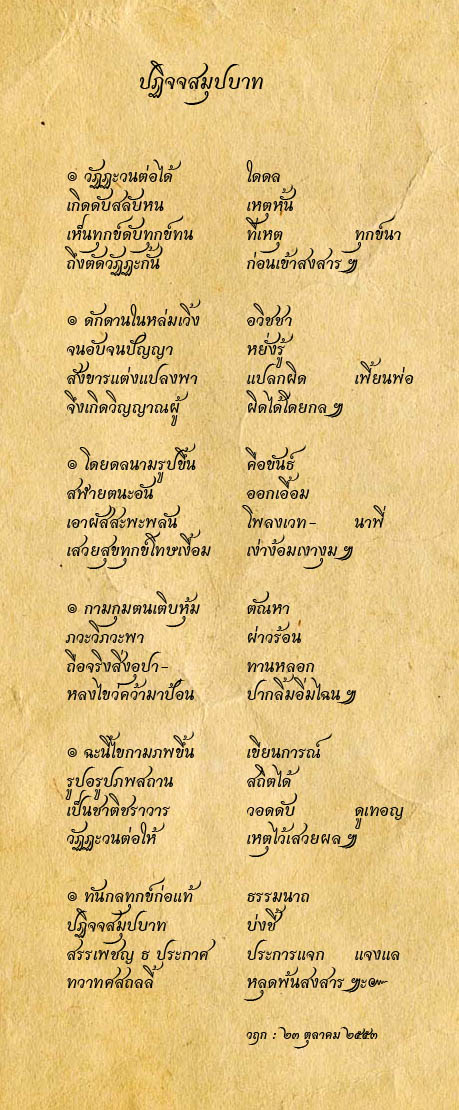 ปฏิจจสมุปบาท
๏ วัฏฏะวนต่อได้ ใดดล
เกิดดับสลับหน เหตุหั้น
เห็นทุกข์ดับทุกข์ทน ที่เหตุ ทุกข์นา
ถึงตัดวัฏฏะกั้น ก่อนเข้าสงสาร ฯ
๏ ดักดานในหล่มเวิ้ง อวิชชา
จนอับจนปัญญา หยั่งรู้
สังขารแต่งแปลงพา แปลกผิด เพี้ยนพ่อ
จึ่งเกิดวิญญาณผู้ ผิดได้โดยกล ฯ
๏ โดยดลนามรูปขึ้น คือขันธ์
สฬายตนะอัน ออกเอื้อม
เอาผัสสะพะพลัน โพลงเวท- นาพี่
เสวยสุขทุกข์โทษเงื้อม เง่าง้อมเงางุม ฯ
๏ กามกุมตนเติบหุ้ม ตัณหา
ภวะวิภวะพา ผ่าวร้อน
ถือจริงสิ่งอุปา- ทานหลอก
หลงไขว่คว้ามาป้อน ปากลิ้มอิ่มไฉน ฯ
๏ ฉะนี้ไขกามภพขึ้น เขียนการณ์
รูปอรูปภพสถาน สถิตได้
เป็นชาติชราวาร วอดดับ ดูเทอญ
วัฏฏะวนต่อให้ เหตุไว้เสวยผล ฯ
๏ ทันกลทุกข์ก่อแท้ ธรรมนาถ
ปฏิจจสมุปบาท บ่งชี้
สรรเพชญ ธ ประกาศ ประการแจก แจงแล
ทวาทศสถลลี้ หลุดพ้นสงสาร ฯะ๛
วฤก : ๒๓ ตุลาคม ๒๕๕๓